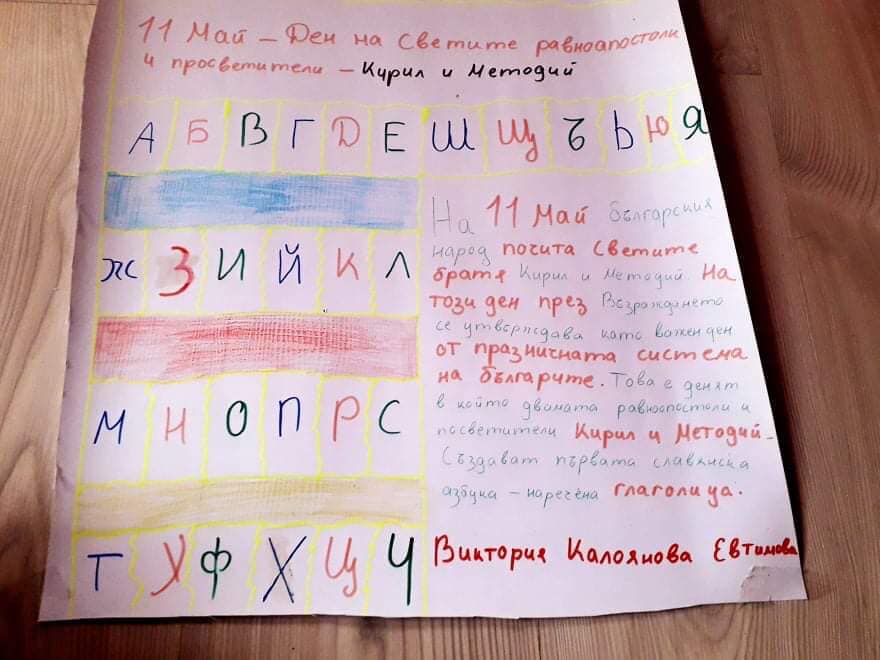 11 Май - Ден на Светите равноапостоли
и просветители - Кирил и Методий
А Б В Г Д Е Ш Щ Ъ Ь Ю Я
Ж З И Й К Л
М Н О П Р С
Т У Ф Х Ц Ч
На 11 Май българския
народ почита Светите
братя Кирил и Методий. На
този ден през Възраждането
се утвърждава като важен ден
от празничната система
на българите. Това е денят
в който двамата равноапостоли и
посветители Кирил и Методий -
Създават първата славянска
азбука - наречена глаголица.
Виктория Калоянова Евтимова